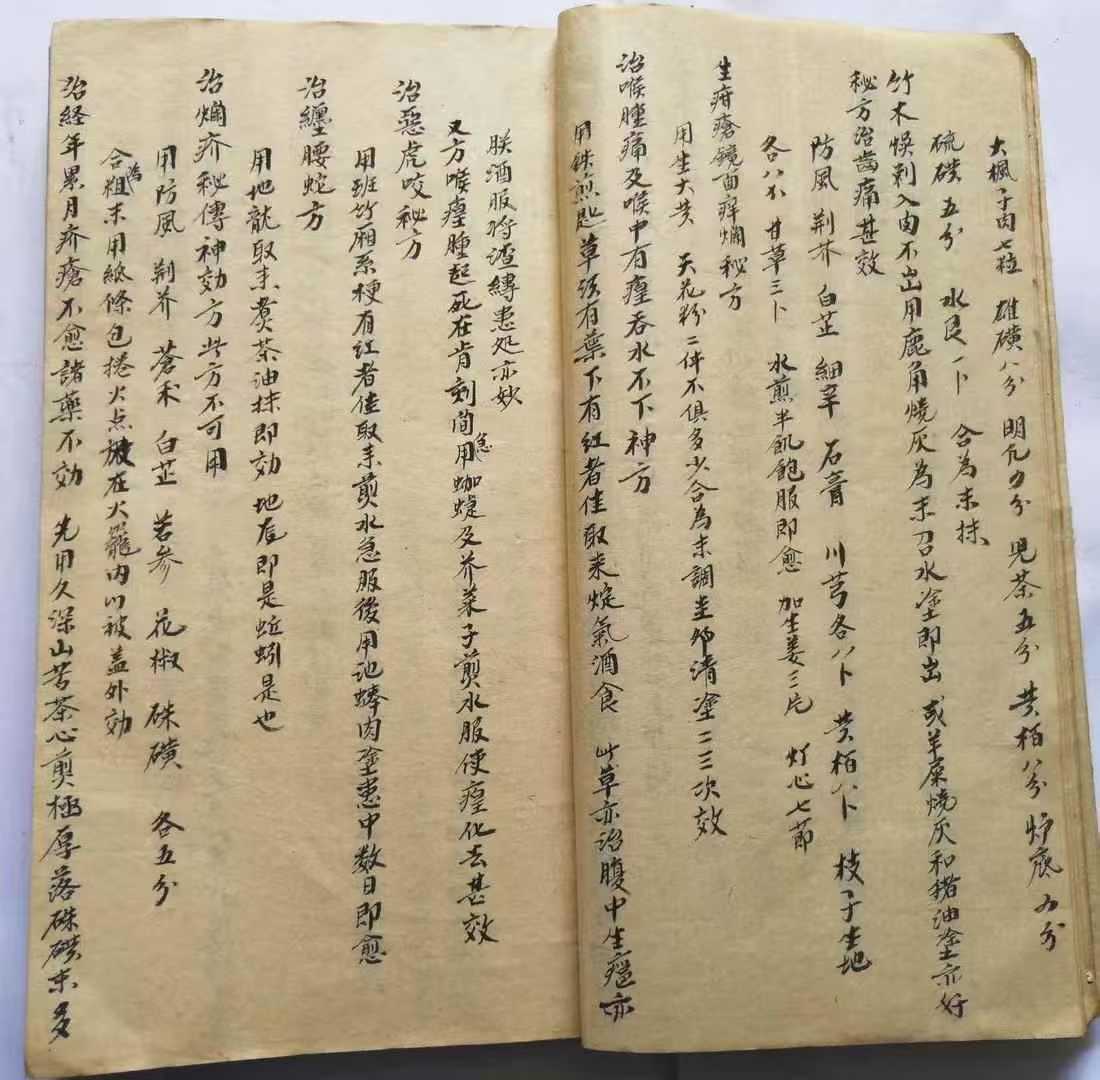 大楓子肉七粒 雄磺八分 明凡五分 児茶五分 黄柏八分 炉底五分
硫磺五分 水艮一卜 合為末抹
竹木悞刺入肉不出用鹿角燒灰為末召水塗即出 或羊屎燒灰和猪油塗亦好
秘方治齒痛甚效
防風 荆芥 白芷 細辛 石膏 川芎各八卜 黄栢八卜 枝子生地
各八卜 甘草三卜 水煎半飢飽服即愈 加生姜三片 灯心七節
生疳瘡鏡面痒爛秘方
用生大黄 天花粉二件不俱多少合為末調圭卵清塗二三次效
治喉腫痛及喉中有瘟吞水不下神方
用鉄煎匙草須有葉下有紅者佳取来 氣酒食 此草亦治腹中生瘟亦
朕酒服将渣縛患処亦妙
又方喉瘟腫起死在肯刻間急用蜘蟽及芥菜子煎水服便瘟化去甚效
治惡虎咬秘方
用班竹厢系梗有紅者佳取来煎水急服後用池蜯肉塗患中数日即愈
治纏腰蛇方
用地龍取末煑茶油抹即効 地龙即是蚯蚓是也
治爛疥秘傳神効方此方不可用
用防風 荆芥 蒼术 白芷 苦参 花椒 硃磺 各五分
合為粗末用紙條包捲火点放在火籠内以被盖外効
治経年累月疥瘡不愈諸藥不効 先用久深山苦茶心煎極厚落硃磺末多